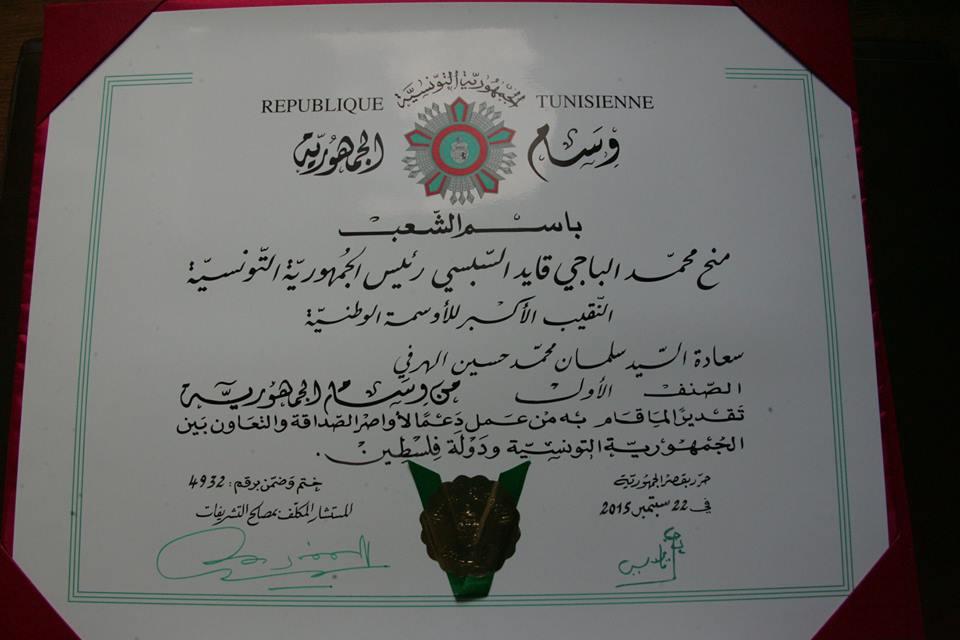 الجمهورية التونسية
REPUBLIQUE TUNISIENNE
وسام الجمهورية
باسم الشعب
منح محمّد الباجي قايد السّبسي رئيس الجمهوريّة التّونسيّة
النّقيب الأكبر للأوسمة الوطنيّة
سعادة السّيد سلمان محمّد حسين الهرفي
الصّنف الأول من وسام الجمهوريّة
تقديرًا لما قام به من عمل دعمًا لأواصر الصّداقة والتّعاون بين
الجمهوريّة التونسيّة ودولة فلسطين.
حرّر بقصر الجمهوريّة
في 22 سبتمبر 2015
ختم وضمن برقم: 4932
المستشار المكلّف بمصالح التشريفات